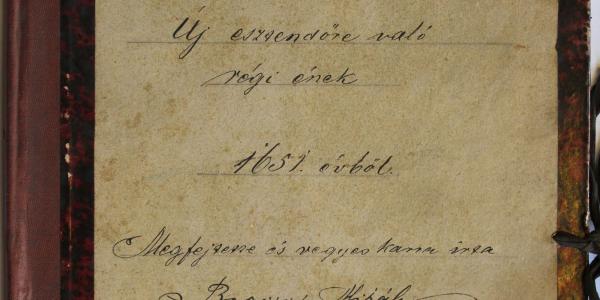 Új esztendőre való
régi ének
1651. évből.
Megfejtette és vegyes karra írta